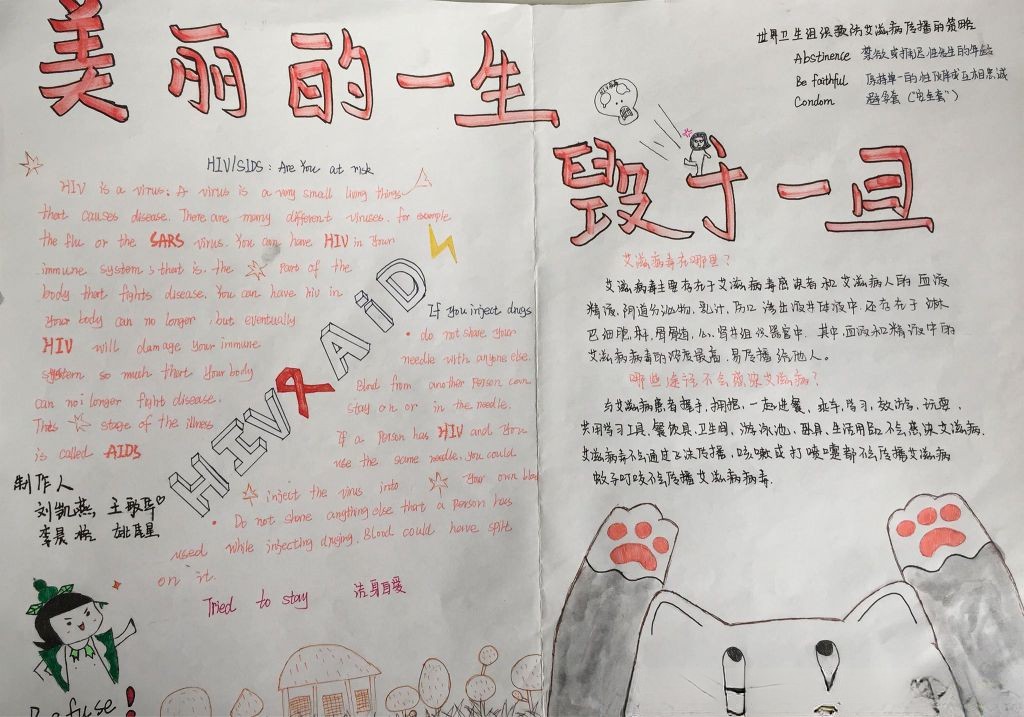 美丽的一生
毁于一旦
世界卫生组织预防艾滋病传播的策略
Abstinence 禁欲或推迟性行为的年龄
Be faithful 保持单一的性伙伴或互相忠诚
Condom 避孕套("安全套")
HIV/SIDS: Are You at risk
HIV is a virus: A virus is a very small living things
that causes disease. There are many different viruses. for example
the flu or the SARS virus. You can have HIV in Your
immune system; that is. the part of the
body that fights disease. You can have hiv in
Your body can no longer, but eventually
HIV will damage Your immune
system so much that Your body
can no longer fight disease.
This stage of the illness
is called AIDS
HIV AiD
If You inject drugs
· do not share Your
needle with anyone else.
Blood from another Person can
stay on or in the needle.
If a Person has HIV and You
use the same needle, You could
inject the virus into Your own blood
· Do not share anything else that a Person has
used while injecting drusing. Blood could have spilt
on it.
Tried to stay 洁身自爱
制作人
刘凯燕 王
李 姚星
Refuse!
艾滋病毒在哪里?
艾滋病毒主要存在于艾滋病毒感染者和艾滋病人的血液
精液,阴道分泌物,乳汁,伤口渗出液等体液中.还存在于淋
巴细胞,脑,骨髓,心,肾等组织器官中.其中血液和精液中的
艾滋病病毒的浓度最高,易传播给他人.
哪些途径不会感染艾滋病?
与艾滋病患者握手,拥抱,一起进餐,乘车,学习,郊游,玩耍,
共用学习工具,餐饮具,卫生间,游泳池,卧具,生活用品不会感染艾滋病.
艾滋病毒不会通过飞沫传播,咳嗽或打喷嚏都不会传播艾滋病
蚊子叮咬不会传播艾滋病病毒.